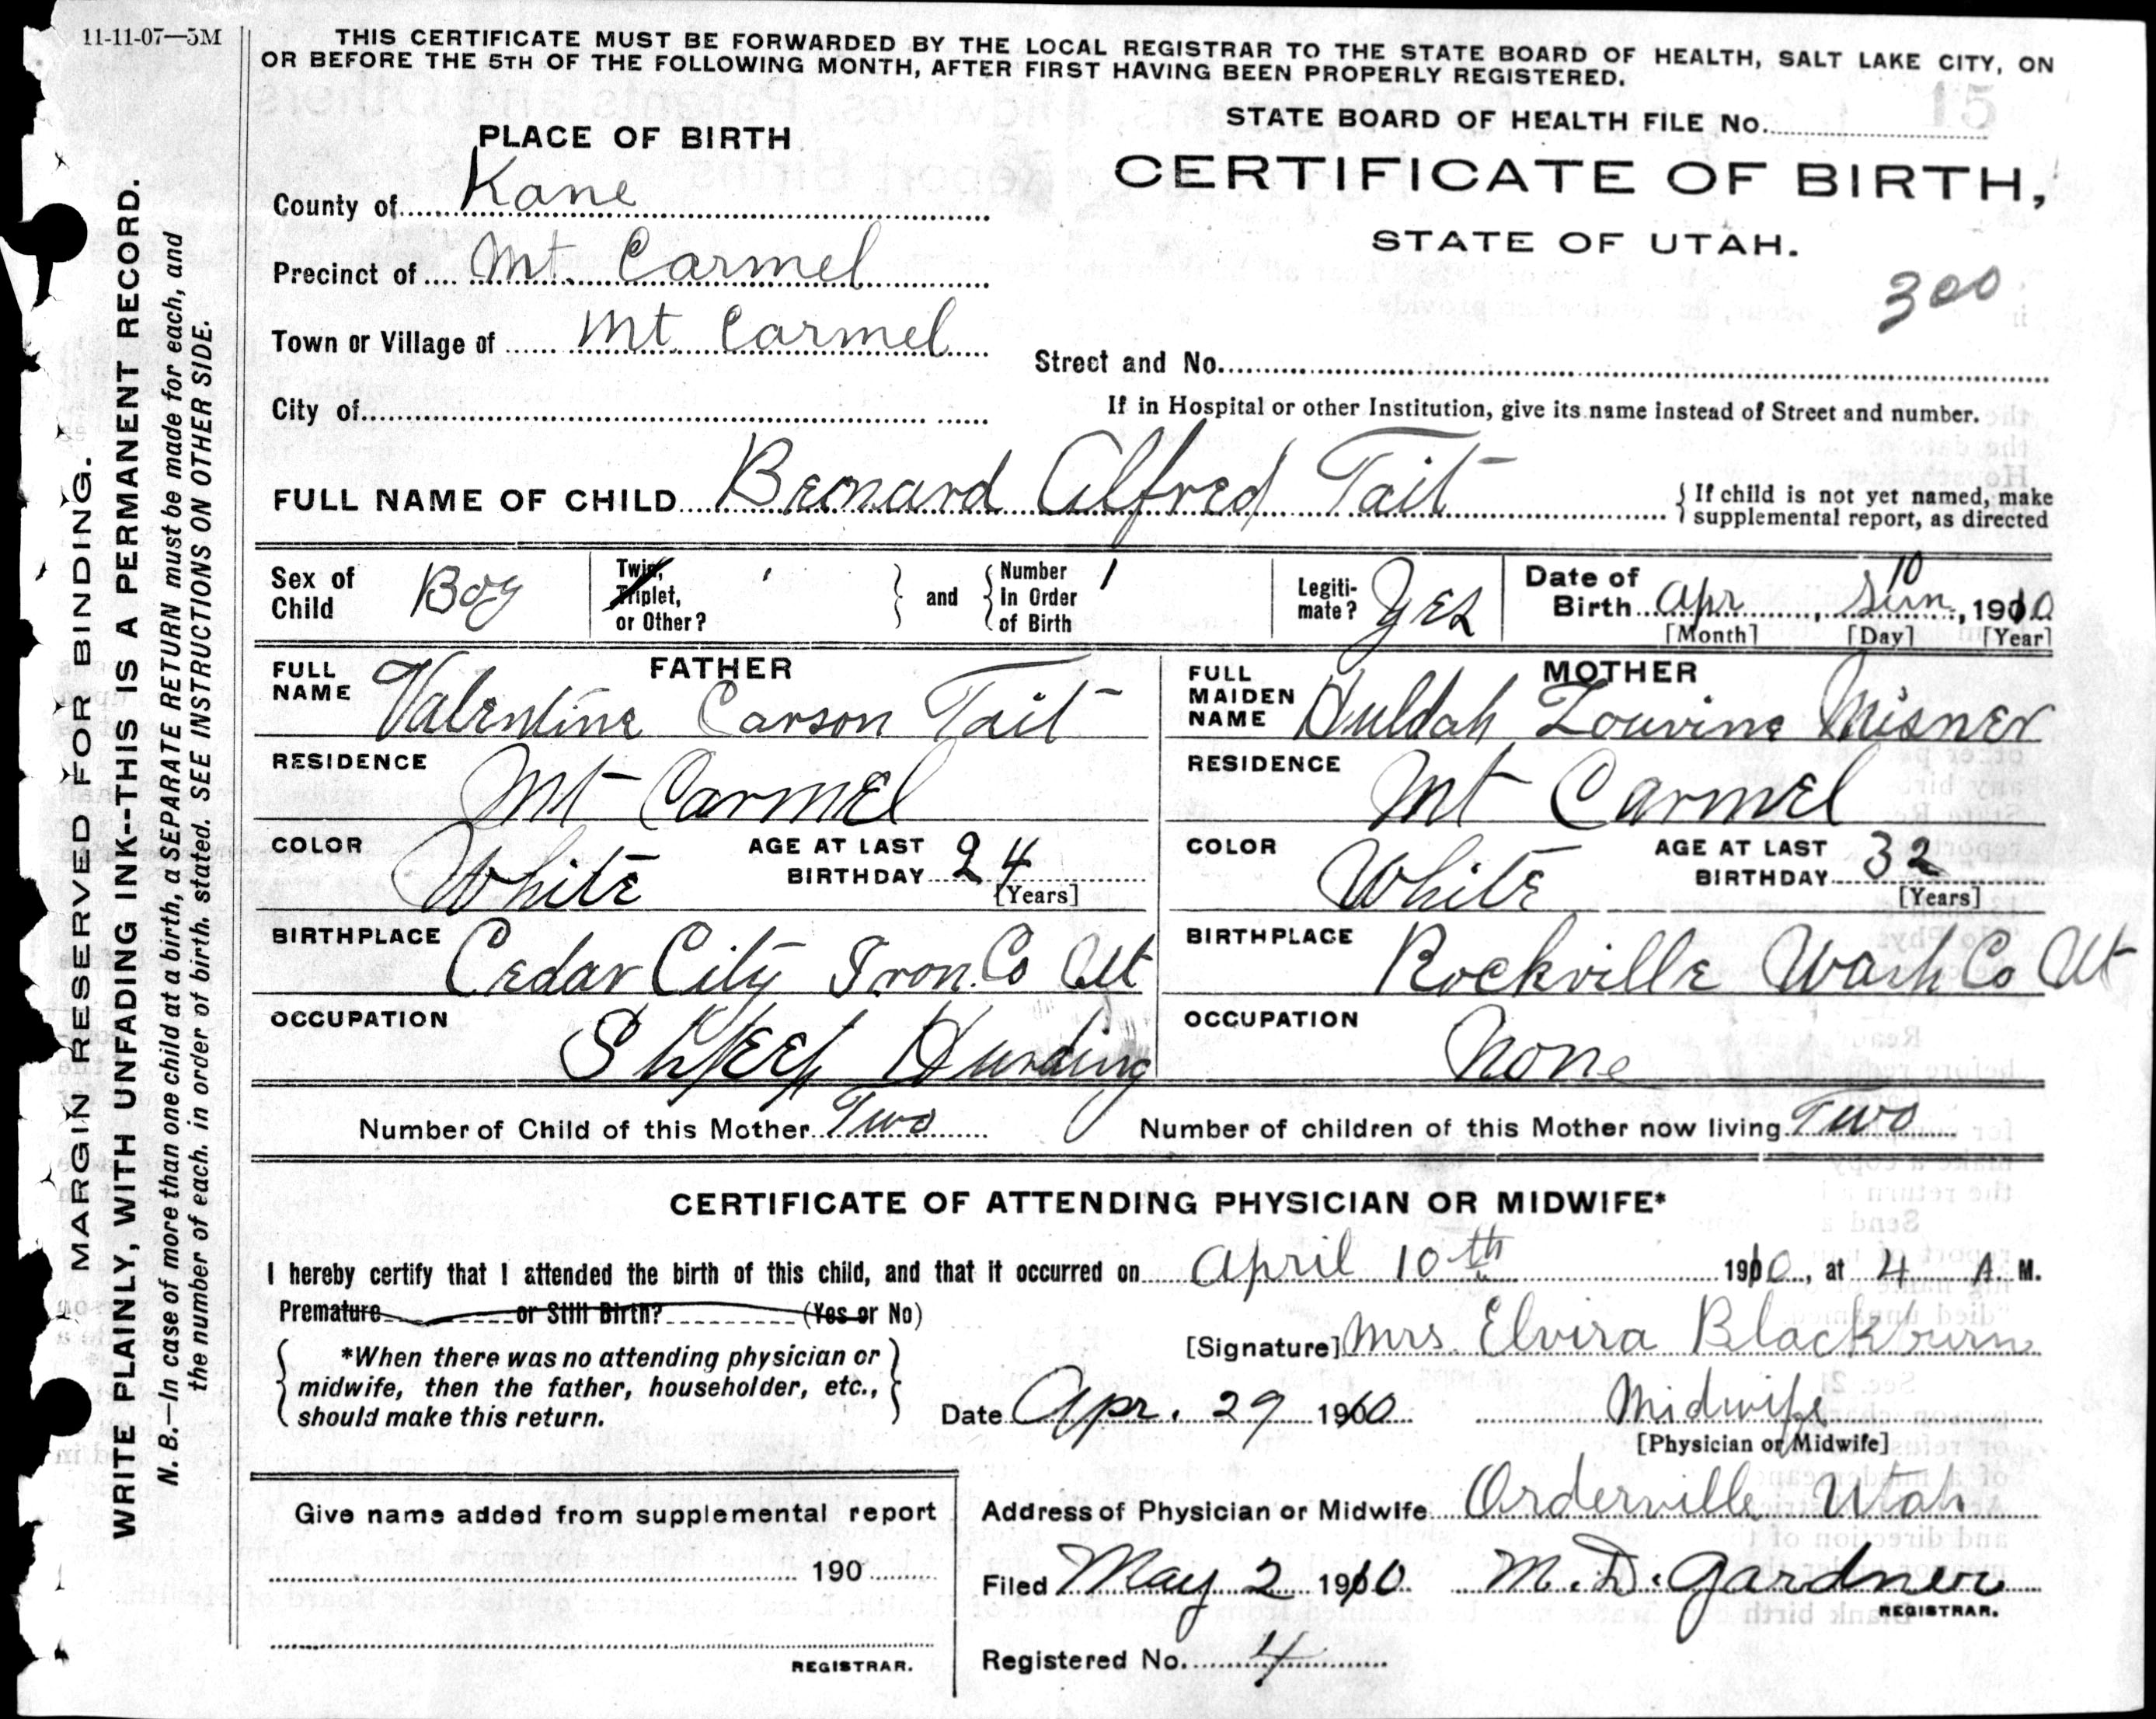 11-11-07—5M
THIS CERTIFICATE MUST BE FORWARDED BY THE LOCAL REGISTRAR TO THE STATE BOARD OF HEALTH, SALT LAKE CITY, ON
OR BEFORE THE 5TH OF THE FOLLOWING MONTH, AFTER FIRST HAVING BEEN PROPERLY REGISTERED.
MARGIN RESERVED FOR BINDING.
WRITE PLAINLY, WITH UNFADING INK--THIS IS A PERMANENT RECORD.
N. B.—In case of more than one child at a birth, a SEPARATE RETURN must be made for each, and
the number of each. in order of birth. stated. SEE INSTRUCTIONS ON OTHER SIDE.
STATE BOARD OF HEALTH FILE No.
15
PLACE OF BIRTH
CERTIFICATE OF BIRTH,
STATE OF UTAH.
County of Kane
Precinct of Mt. Carmel
300
Town or Village of Mt Carmel
Street and No.
City of
If in Hospital or other Institution, give its name instead of Street and number.
FULL NAME OF CHILD Bernard Alfred Tait
If child is not yet named, make
supplemental report, as directed
Sex of Child Boy
Twin, Triplet, or Other?
and
Number In Order of Birth 1
Legiti-mate? Yes
Date of Birth Apr, Sun 10, 1910
[Month] [Day] [Year]
FATHER
FULL NAME Valentine Carson Tait
MOTHER
FULL MAIDEN NAME Huldah Louvine Misner
RESIDENCE Mt Carmel
RESIDENCE Mt Carmel
COLOR White AGE AT LAST BIRTHDAY 24 [Years]
COLOR White AGE AT LAST BIRTHDAY 32 [Years]
BIRTHPLACE Cedar City Iron. Co Ut
BIRTHPLACE Rockville Wash Co Ut
OCCUPATION Sheep Hurding
OCCUPATION None
Number of Child of this Mother Two
Number of children of this Mother now living Two
CERTIFICATE OF ATTENDING PHYSICIAN OR MIDWIFE*
I hereby certify that I attended the birth of this child, and that it occurred on April 10th 1910, at 4 A. M.
Premature or Still Birth? (Yes or No)
[Signature] Mrs. Elvira Blackburn
*When there was no attending physician or
midwife, then the father, householder, etc.,
should make this return.
Date Apr. 29 1910
Midwife
[Physician or Midwife]
Give name added from supplemental report
190
REGISTRAR.
Address of Physician or Midwife Orderville Utah
Filed May 2 1910 M. D. Gardner
REGISTRAR.
Registered No. 4